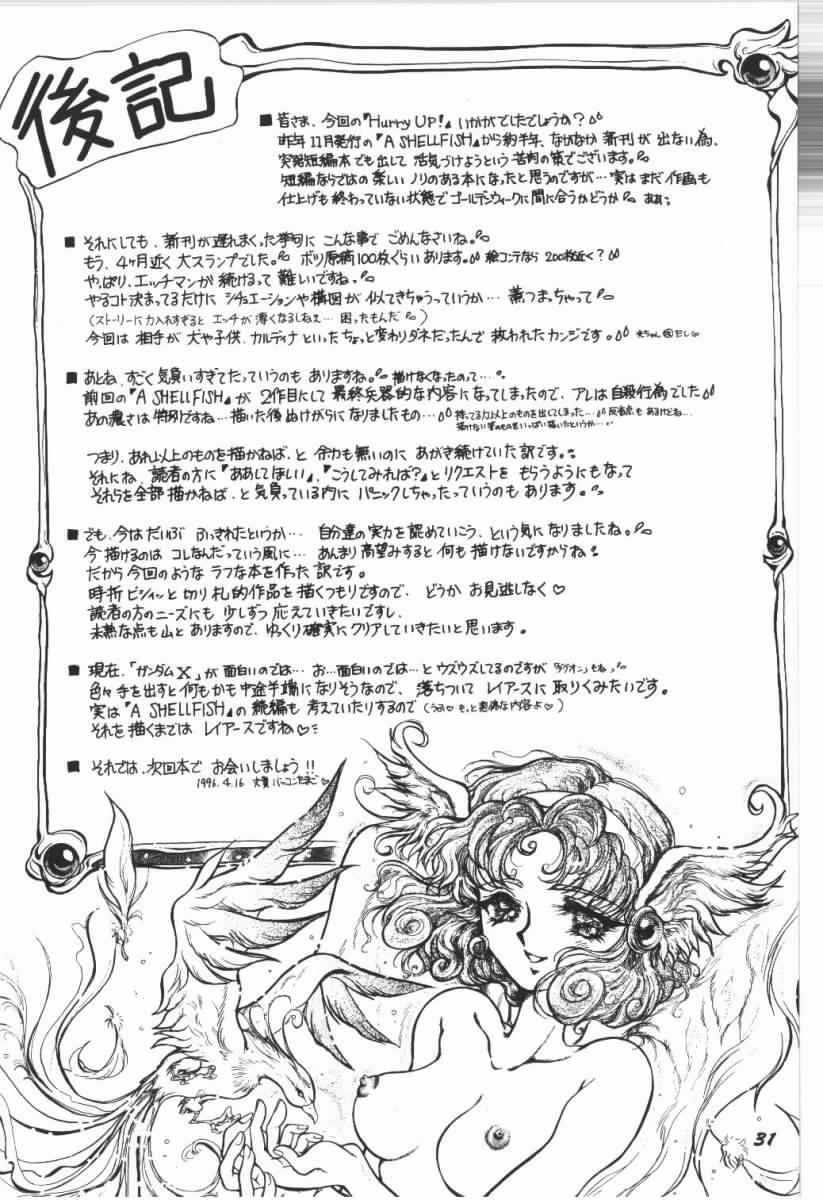 後記
■ 皆さま、今回の『Hurry UP!』いかがでしたでしょうか?
昨年11月発行の『A SHELLFISH』から約半年、なかなか新刊が出ない為、
突発短編本でも出して活気づけようという苦肉の策でございます。
短編ならではの楽しいノリのある本になったと思うのですが…実はまだ作画も
仕上げも終わっていない状態でゴールデンウィークに間に合うかどうか。ああ;
■ それにしても、新刊が遅れまくった挙句にこんな事でごめんなさいね。
もう、4ヶ月近く大スランプでした。ボツ原稿100枚ぐらいあります。絵コンテなら200枚近く?
やっぱり、エッチマンガ続けるって難しいですね。
やるコト決まってるだけにシチュエーションや構図が似てきちゃうっていうか…煮つまっちゃって
(ストーリーに力入れすぎるとエッチが薄くなるしねぇ…困ったもんだ)
今回は相手が犬や子供、カルディナといったちょっと変わりダネだったんで救われたカンジです。
■ あとね、すごく気負いすぎてたっていうのもありますね。描けなくなったのって…
前回の『A SHELLFISH』が2作目にして最終兵器的な内容になってしまったので、アレは自殺行為でした
あの濃さは特別ですね…描いた後ぬけがらになりましたもの…持ってる力以上のものを出してしまった…反省点もあるけどね…
描けない筈のものをいっぱい描いたというか…
つまり、あれ以上のものを描かねば、と余力も無いのにあがき続けていた訳です。
それにね、読者の方に『ああしてほしい』、『こうしてみれば?』とリクエストをもらうようにもなって
それらを全部描かねば、と気負っている内にパニックしちゃったっていうのもあります。
■ でも、今はだいぶふっきれたというか… 自分達の実力を認めていこう、という気になりましたね。
今描けるのはコレなんだっていう風に… あんまり高望みすると何も描けないですからね
だから今回のようなラフな本を作った訳です。
時折ビシィッと切り札的作品を描くつもりですので、どうかお見逃しなく♡
読者の方のニーズにも少しずつ応えていきたいですし、
未熟な点も山とありますので、ゆっくり確実にクリアしていきたいと思います。
■ 現在、「ガンダムX」が面白いのでは…お…面白いのでは…とウズウズしてるのですが
色々手を出すと何もかも中途半端になりそうなので、落ちついてレイアースに取りくみたいです。
実は『A SHELLFISH』の続編も考えていたりするので(うふ♡もっと悪趣な内容よ♡)
それを描くまではレイアースですね♡
■ それでは、次回本でお会いしましょう!!
1996.4.16
31